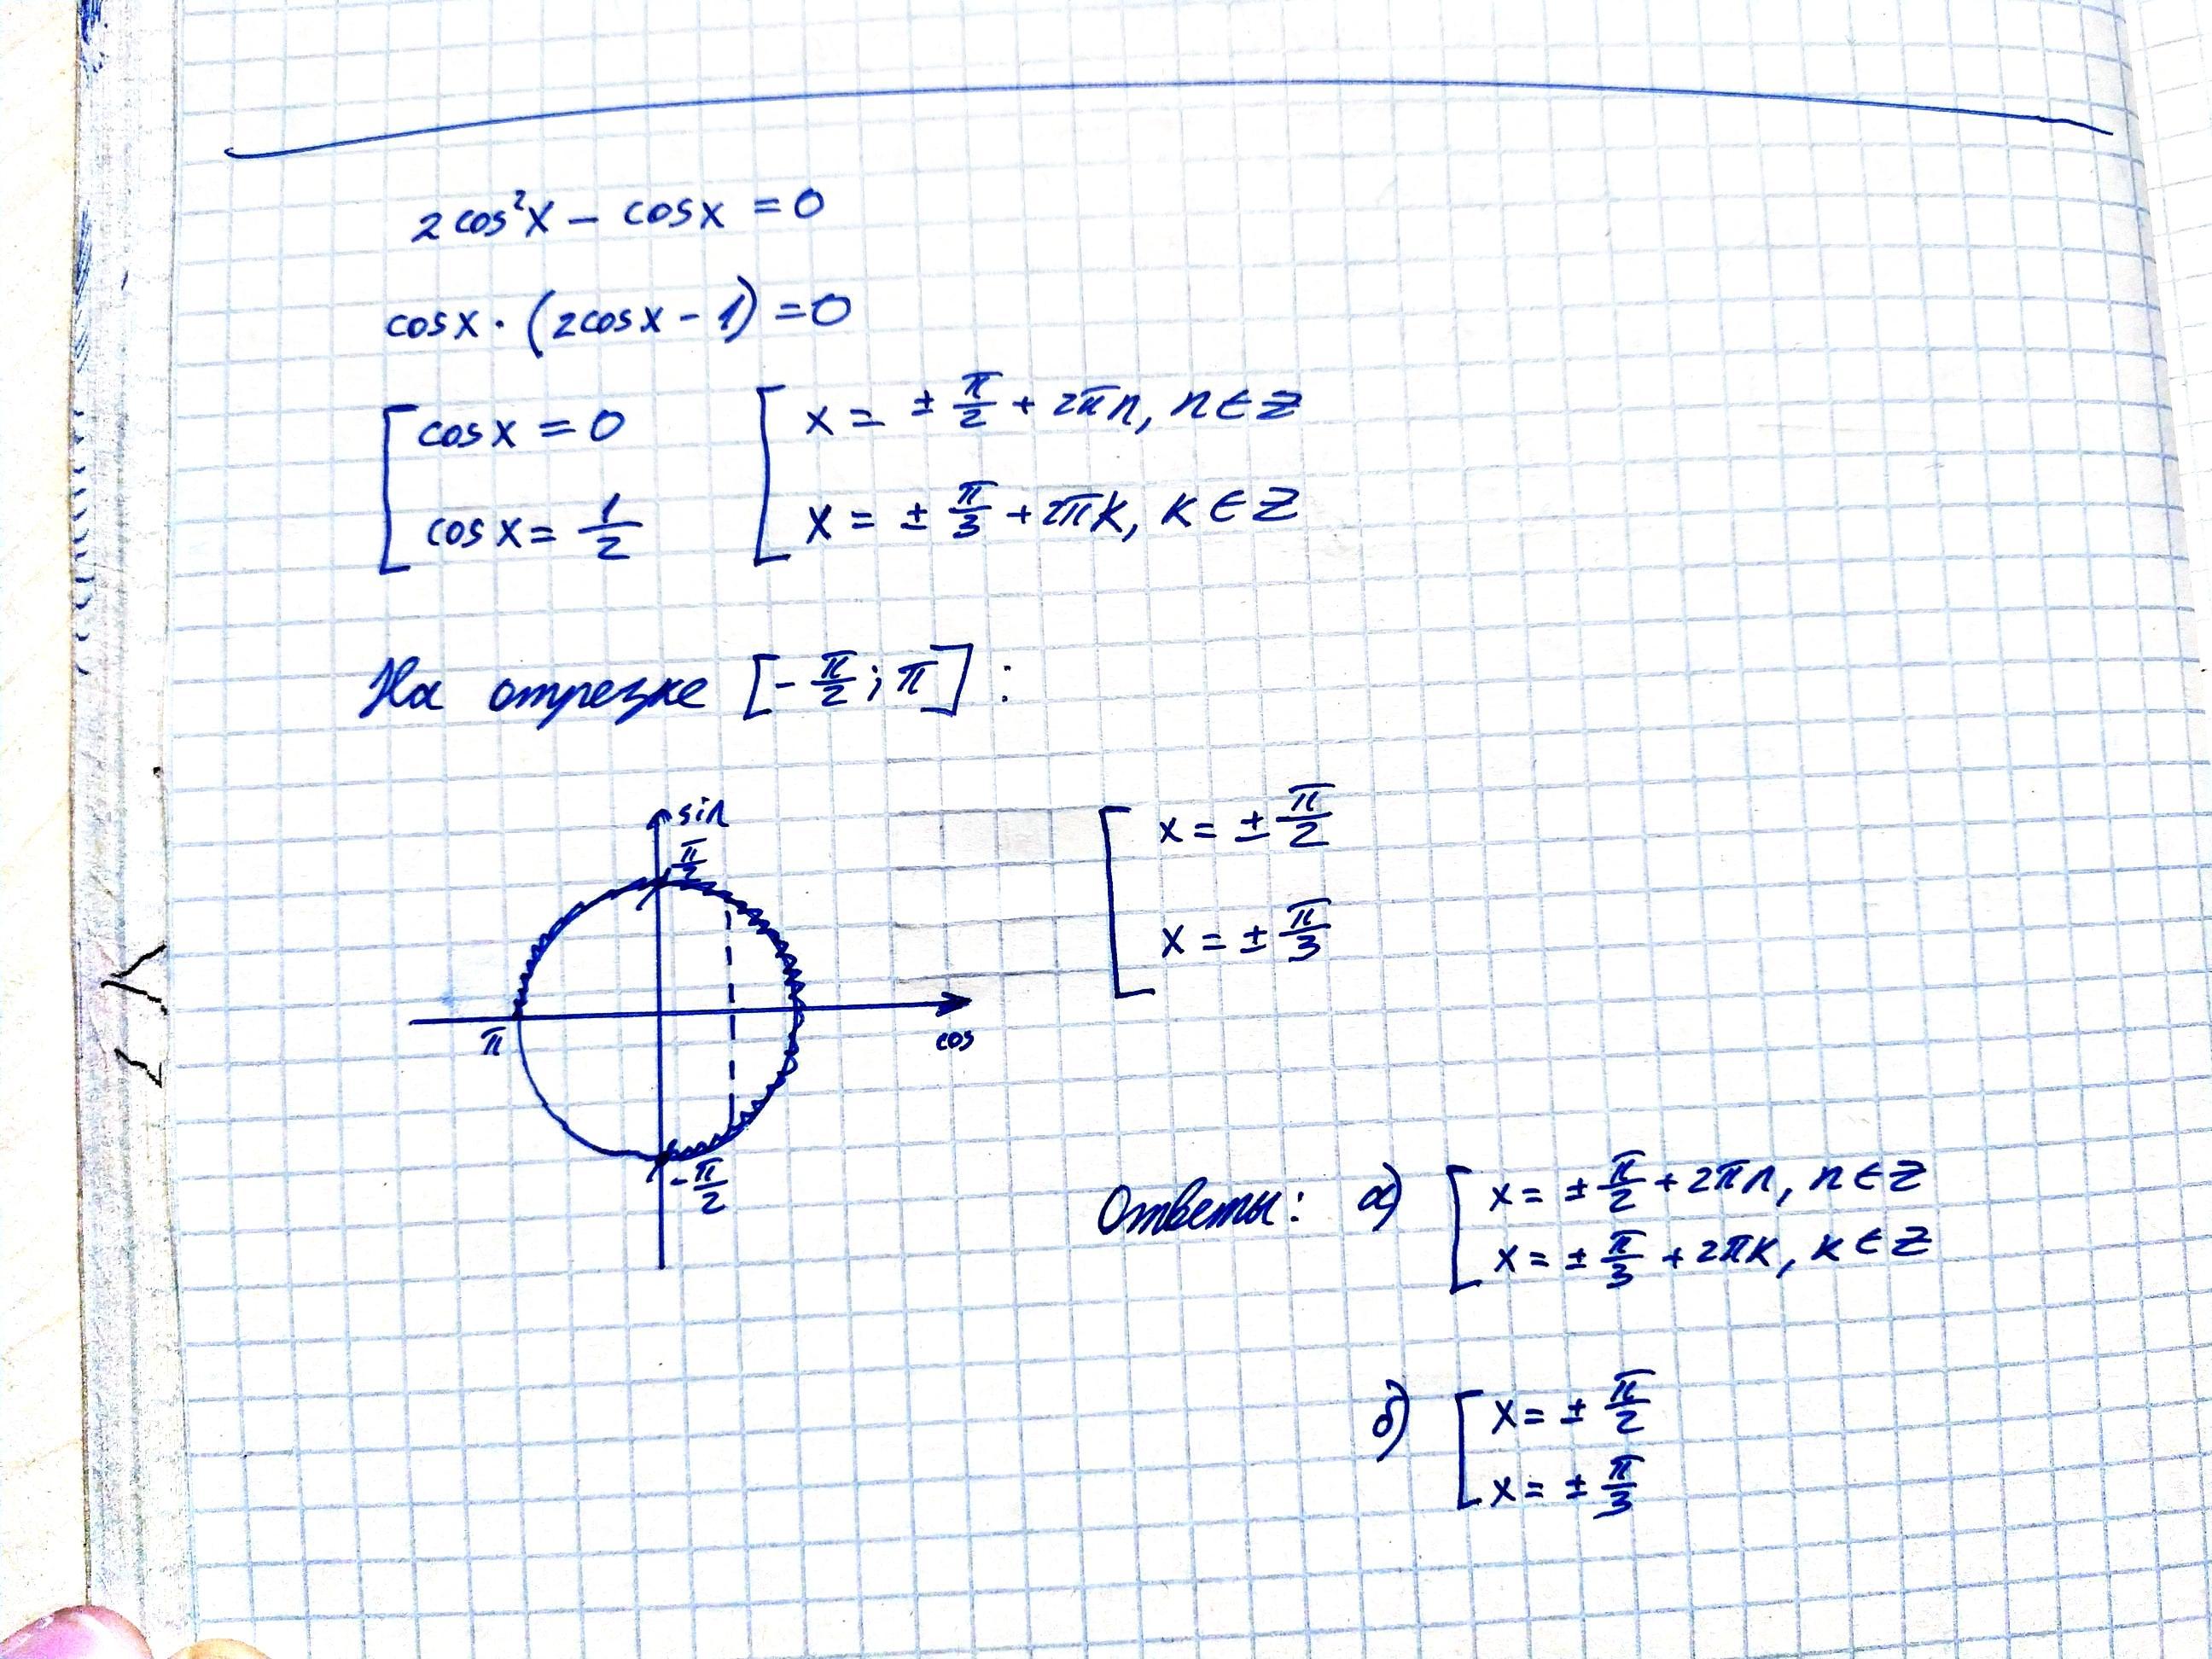 2 cos²x − cosx = 0
cosx · (2cosx − 1) = 0
[ cosx = 0 [ x = ± π/2 + 2πn, n ∈ Z
cosx = 1/2 x = ± π/3 + 2πk, k ∈ Z
На отрезке [− π/2 ; π] :
sin
π/2
π
cos
− π/2
[ x = ± π/2
x = ± π/3
Ответы: а) [ x = ± π/2 + 2πn, n ∈ Z
x = ± π/3 + 2πk, k ∈ Z
б) [ x = ± π/2
x = ± π/3